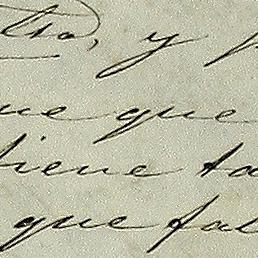 lta, y p
ue que
tiene ta
que fal